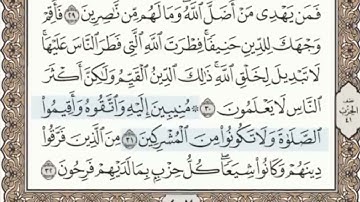 فَمَن يَهْدِي مَنْ أَضَلَّ ٱللَّهُ ۖ وَمَا لَهُم مِّن نَّٰصِرِينَ ٢٩ فَأَقِمْ
وَجْهَكَ لِلدِّينِ حَنِيفًا ۚ فِطْرَتَ ٱللَّهِ ٱلَّتِي فَطَرَ ٱلنَّاسَ عَلَيْهَا ۚ
لَا تَبْدِيلَ لِخَلْقِ ٱللَّهِ ۚ ذَٰلِكَ ٱلدِّينُ ٱلْقَيِّمُ وَلَٰكِنَّ أَكْثَرَ
ٱلنَّاسِ لَا يَعْلَمُونَ ٣٠ ۞ مُنِيبِينَ إِلَيْهِ وَٱتَّقُوهُ وَأَقِيمُوا۟
ٱلصَّلَوٰةَ وَلَا تَكُونُوا۟ مِنَ ٱلْمُشْرِكِينَ ٣١ مِنَ ٱلَّذِينَ فَرَّقُوا۟
دِينَهُمْ وَكَانُوا۟ شِيَعًا ۖ كُلُّ حِزْبٍۭ بِمَا لَدَيْهِمْ فَرِحُونَ ٣٢